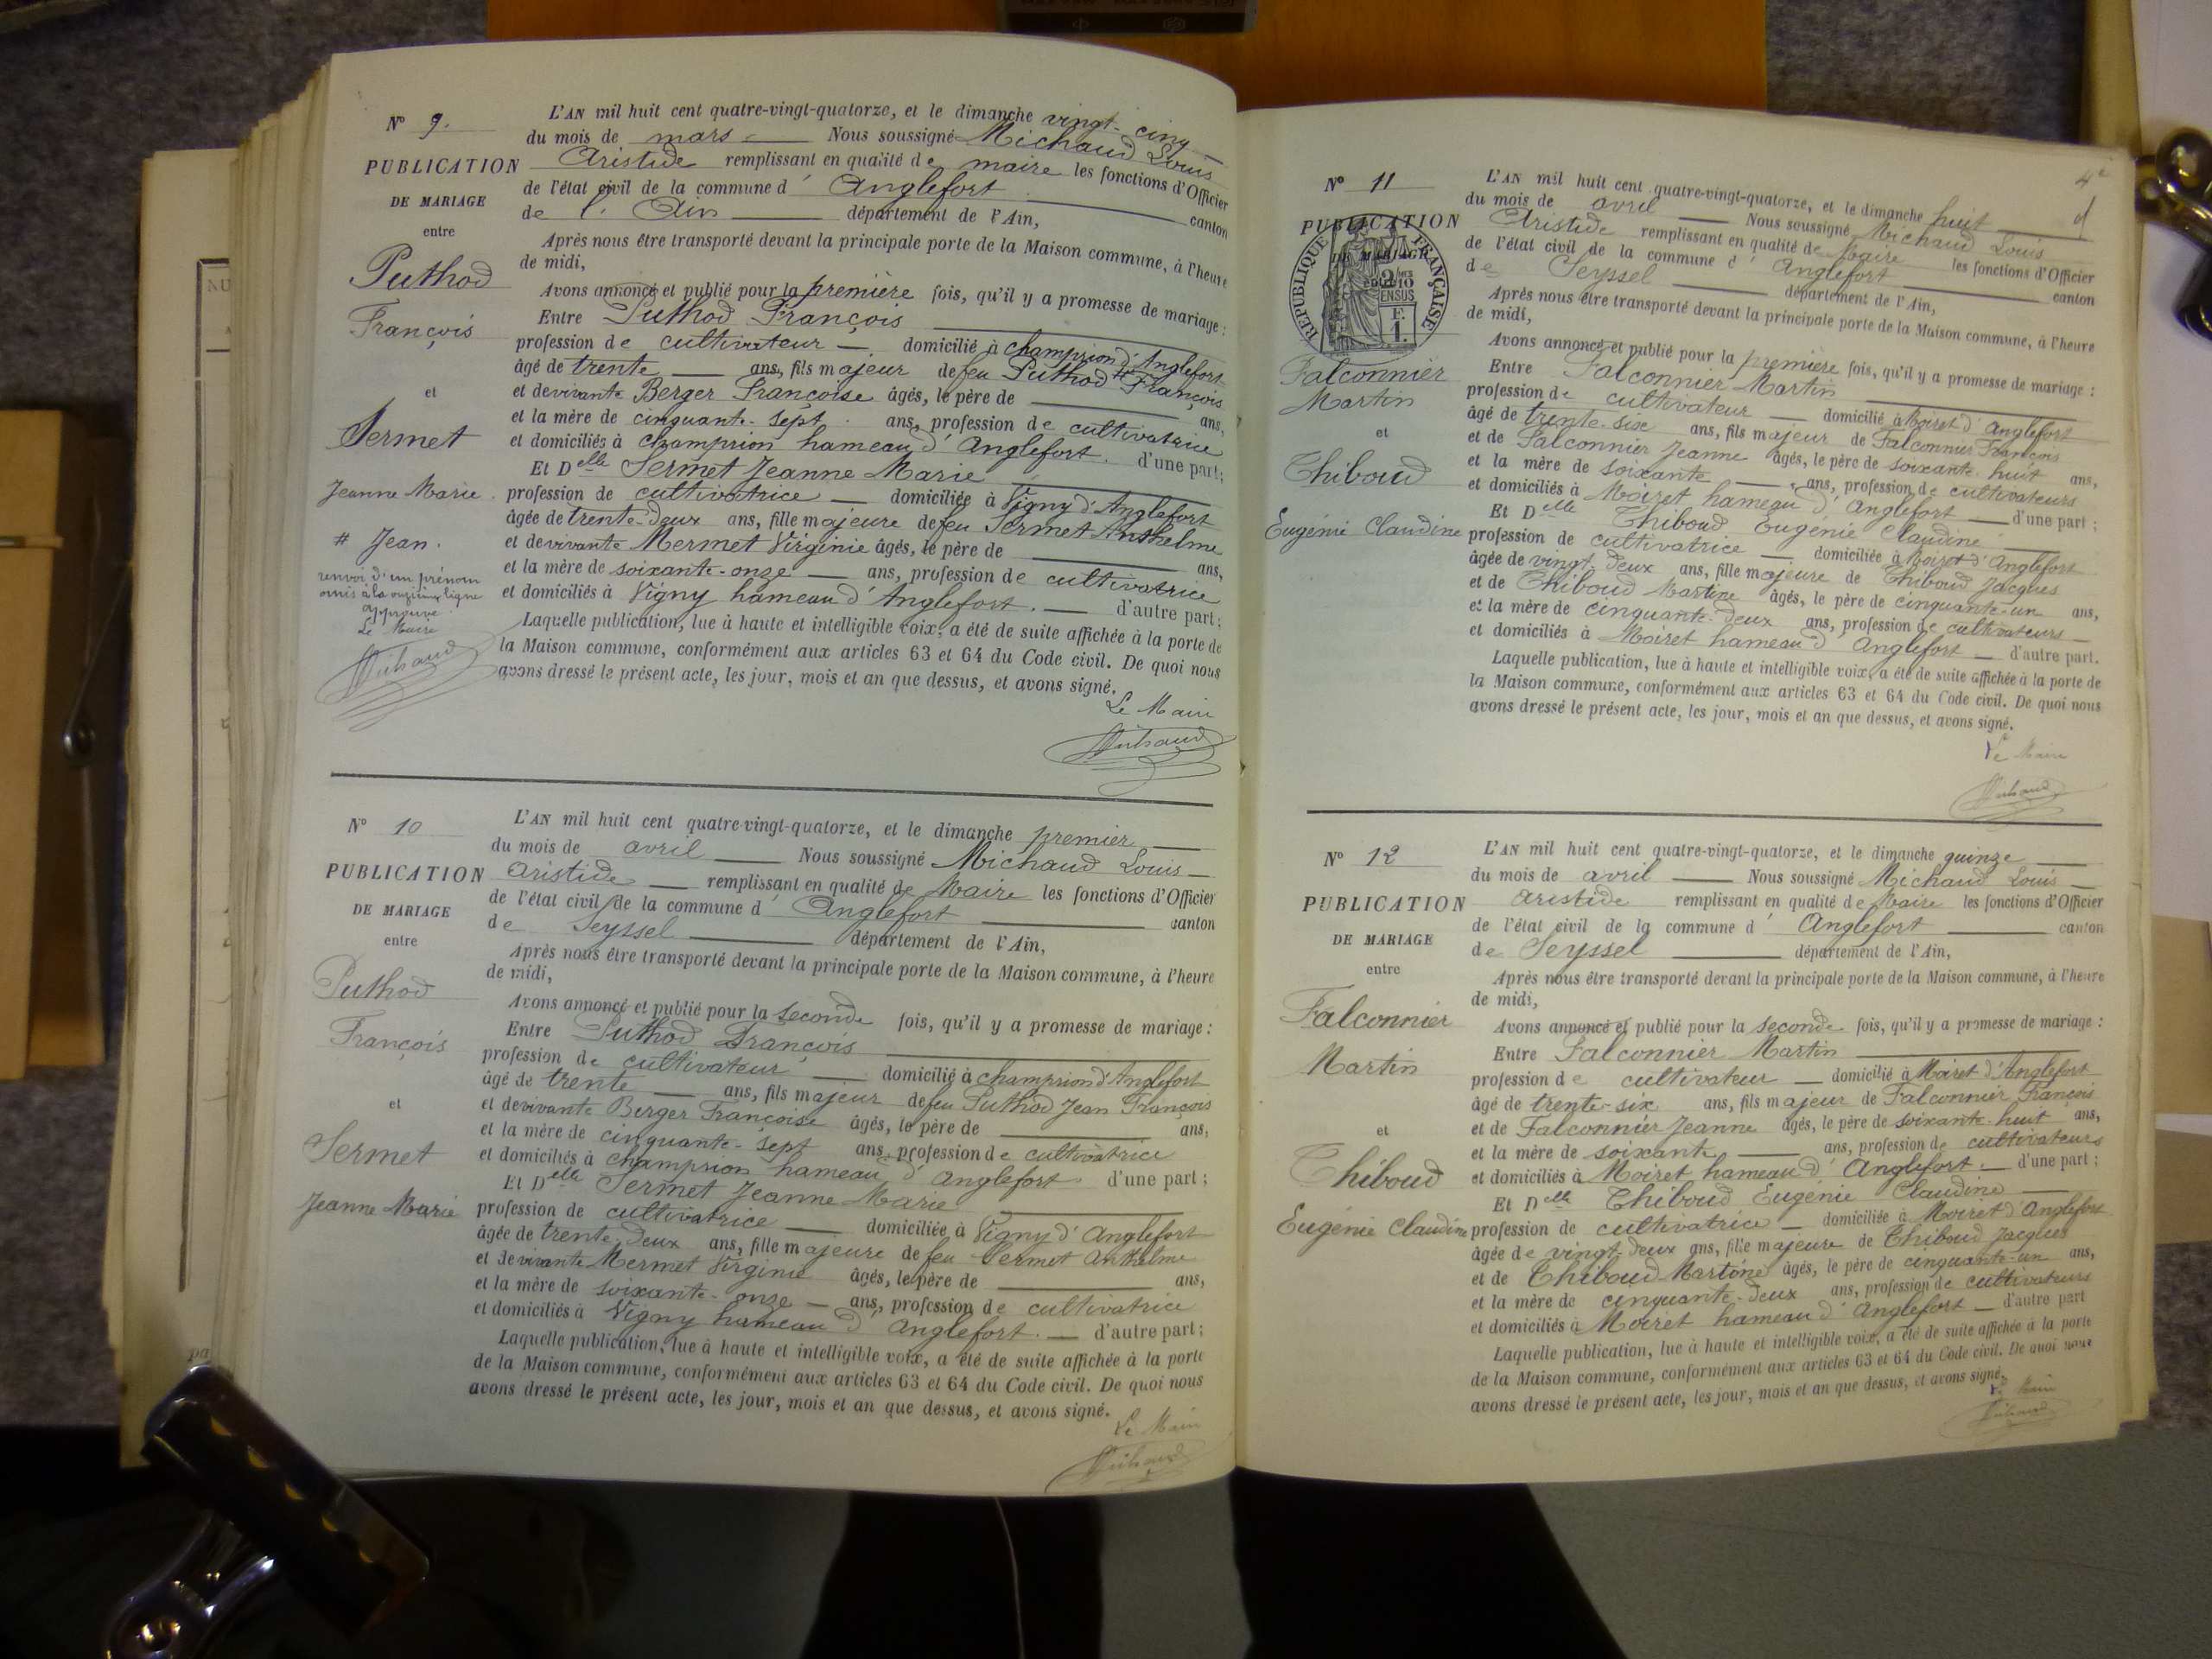 N° 9.
PUBLICATION
DE MARIAGE
entre
Puthod
François
et
Sermet
Jeanne Marie.
# Jean.
renvoi d'un prénom
omis à la onzième ligne
approuvé
Le Maire
L'AN mil huit cent quatre-vingt-quatorze, et le dimanche vingt-cinq
du mois de mars Nous soussigné Michaud Louis
Aristide remplissant en qualité de maire les fonctions d'Officier
de l'état civil de la commune d' Anglefort canton
de l'Ain département de l'Ain,
Après nous être transporté devant la principale porte de la Maison commune, à l'heure
de midi,
Avons annoncé et publié pour la première fois, qu'il y a promesse de mariage :
Entre Puthod François
profession de cultivateur domicilié à champrion d'Anglefort
âgé de trente ans, fils majeur de feu Puthod # François
et de vivante Berger Françoise âgés, le père de ans,
et la mère de cinquante-sept ans, profession de cultivatrice
et domiciliés à champrion hameau d'Anglefort. d'une part;
Et Delle Sermet Jeanne Marie
profession de cultivatrice domiciliée à Vigny d'Anglefort
âgée de trente-deux ans, fille majeure de feu Sermet Anthelme
et de vivante Mermet Virginie âgés, le père de ans,
et la mère de soixante-onze ans, profession de cultivatrice
et domiciliés à Vigny hameau d'Anglefort. d'autre part;
Laquelle publication, lue à haute et intelligible voix, a été de suite affichée à la porte de
la Maison commune, conformément aux articles 63 et 64 du Code civil. De quoi nous
avons dressé le présent acte, les jour, mois et an que dessus, et avons signé.
Le Maire
N° 10
PUBLICATION
DE MARIAGE
entre
Puthod
François
et
Sermet
Jeanne Marie
L'AN mil huit cent quatre-vingt-quatorze, et le dimanche premier
du mois de avril Nous soussigné Michaud Louis
Aristide remplissant en qualité de Maire les fonctions d'Officier
de l'état civil de la commune d' Anglefort canton
de Seyssel département de l'Ain,
Après nous être transporté devant la principale porte de la Maison commune, à l'heure
de midi,
Avons annoncé et publié pour la seconde fois, qu'il y a promesse de mariage :
Entre Puthod François
profession de cultivateur domicilié à champrion d'Anglefort
âgé de trente ans, fils majeur de feu Puthod Jean François
et de vivante Berger Françoise âgés, le père de ans,
et la mère de cinquante-sept ans, profession de cultivatrice
et domiciliés à champrion hameau d'Anglefort. d'une part ;
Et Delle Sermet Jeanne Marie
profession de cultivatrice domiciliée à Vigny d'Anglefort
âgée de trente-deux ans, fille majeure de feu Sermet Anthelme
et de vivante Mermet Virginie âgés, le père de ans,
et la mère de soixante-onze ans, profession de cultivatrice
et domiciliés à Vigny hameau d'Anglefort. d'autre part ;
Laquelle publication, lue à haute et intelligible voix, a été de suite affichée à la porte
de la Maison commune, conformément aux articles 63 et 64 du Code civil. De quoi nous
avons dressé le présent acte, les jour, mois et an que dessus, et avons signé.
Le Maire
4e
N° 11
PUBLICATION
DE MARIAGE
REPUBLIQUE FRANÇAISE
Falconnier
Martin
et
Thiboud
Eugénie Claudine
L'AN mil huit cent quatre-vingt-quatorze, et le dimanche huit
du mois de avril Nous soussigné Michaud Louis
Aristide remplissant en qualité de Maire les fonctions d'Officier
de l'état civil de la commune d' Anglefort canton
de Seyssel département de l'Ain,
Après nous être transporté devant la principale porte de la Maison commune, à l'heure
de midi,
Avons annoncé et publié pour la première fois, qu'il y a promesse de mariage :
Entre Falconnier Martin
profession de cultivateur domicilié à Moiret d'Anglefort
âgé de trente-six ans, fils majeur de Falconnier François
et de Falconnier Jeanne âgés, le père de soixante-huit ans,
et la mère de soixante ans, profession de cultivateurs
et domiciliés à Moiret hameau d'Anglefort d'une part ;
Et Delle Thiboud Eugénie Claudine
profession de cultivatrice domiciliée à Moiret d'Anglefort
âgée de vingt-deux ans, fille majeure de Thiboud Jacques
et de Thiboud Martine âgés, le père de cinquante-un ans,
et la mère de cinquante-deux ans, profession de cultivateurs
et domiciliés à Moiret hameau d'Anglefort d'autre part.
Laquelle publication, lue à haute et intelligible voix, a été de suite affichée à la porte de
la Maison commune, conformément aux articles 63 et 64 du Code civil. De quoi nous
avons dressé le présent acte, les jour, mois et an que dessus, et avons signé.
Le Maire
N° 12
PUBLICATION
DE MARIAGE
entre
Falconnier
Martin
et
Thiboud
Eugénie Claudine
L'AN mil huit cent quatre-vingt-quatorze, et le dimanche quinze
du mois de avril Nous soussigné Michaud Louis
Aristide remplissant en qualité de Maire les fonctions d'Officier
de l'état civil de la commune d' Anglefort canton
de Seyssel département de l'Ain,
Après nous être transporté devant la principale porte de la Maison commune, à l'heure
de midi,
Avons annoncé et publié pour la seconde fois, qu'il y a promesse de mariage :
Entre Falconnier Martin
profession de cultivateur domicilié à Moiret d'Anglefort
âgé de trente-six ans, fils majeur de Falconnier François
et de Falconnier Jeanne âgés, le père de soixante-huit ans,
et la mère de soixante ans, profession de cultivateurs
et domiciliés à Moiret hameau d'Anglefort. d'une part ;
Et Delle Thiboud Eugénie Claudine
profession de cultivatrice domiciliée à Moiret d'Anglefort
âgée de vingt-deux ans, fille majeure de Thiboud Jacques
et de Thiboud Martine âgés, le père de cinquante-un ans,
et la mère de cinquante-deux ans, profession de cultivateurs
et domiciliés à Moiret hameau d'Anglefort d'autre part
Laquelle publication, lue à haute et intelligible voix, a été de suite affichée à la porte
de la Maison commune, conformément aux articles 63 et 64 du Code civil. De quoi nous
avons dressé le présent acte, les jour, mois et an que dessus, et avons signé.
Le Maire